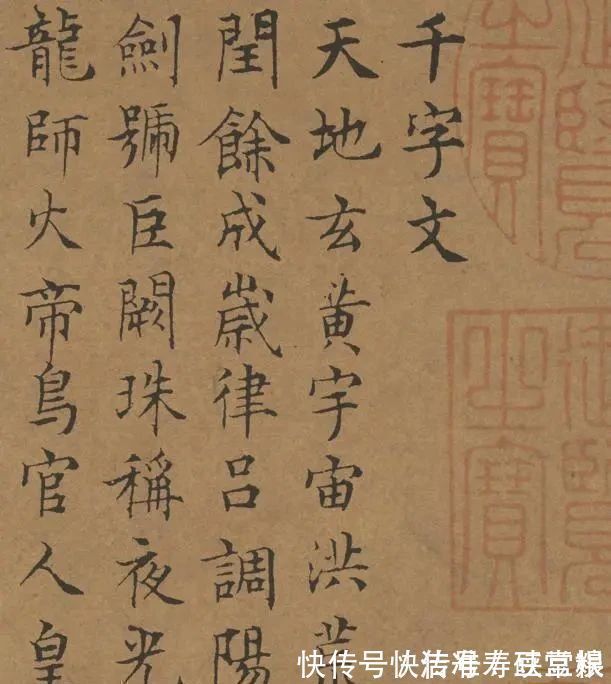 千字文
天地玄黄宇宙洪荒
閏餘成歲律呂調陽
劍號巨闕珠稱夜光
龍師火帝鳥官人皇
之寶
御覽之寶
快传号